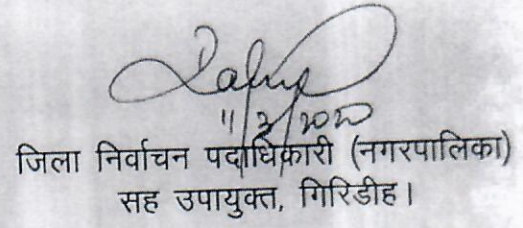 11/2/2020
जिला निर्वाचन पदाधिकारी (नगरपालिका)
सह उपायुक्त, गिरिडीह।